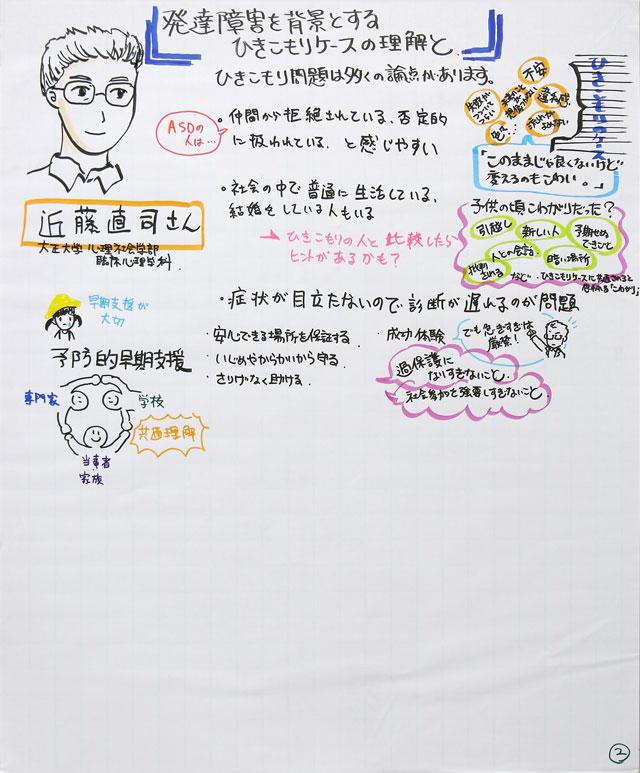 発達障害を背景とする
ひきこもりケースの理解と
ひきこもり問題は多くの論点があります。
ASDの
人は…
・仲間から拒絶されている、否定的
に扱われている、と感じやすい
・社会の中で普通に生活している、
結婚をしている人もいる
→ ひきこもりの人と比較したら
ヒントがあるかも？
近藤直司さん
大正大学心理社会学部
臨床心理学科
不安
違和感
ひきこもりのケース
「このままじゃ良くないけど
変えるのもこわい。」
子供の頃こわがりだった？
引越し
新しい人
予期せぬ
できごと
人との会話
暗い場所
批判
される
など
・症状が目立たないので診断が遅れるのが問題
早期支援が
大切
予防的早期支援
・安心できる場所を保証する
・いじめやからかいから守る
・さりげなく助ける
・成功体験
でも急ぎすぎは
厳禁！
過保護に
なりすぎないこと
社会参加を強要しすぎないこと
専門家
学校
共通理解
当事者
家族
2